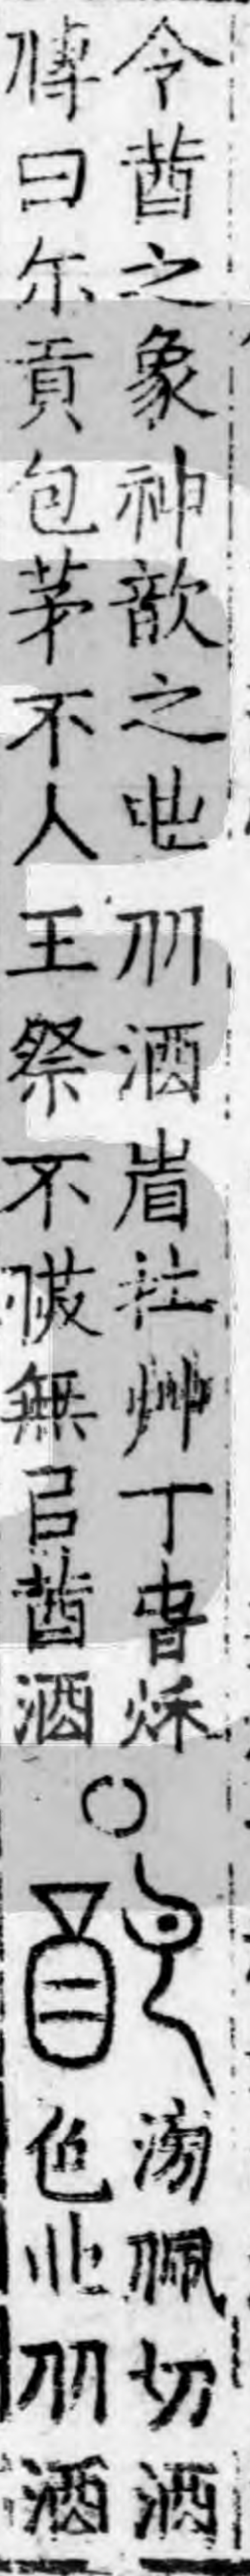 令莤之象神歆之也从酒省在艸丅旾秌
傳曰尔貢包茅不入王祭不供無㠯莤酒
○
配
滂佩切酒
色也从酒